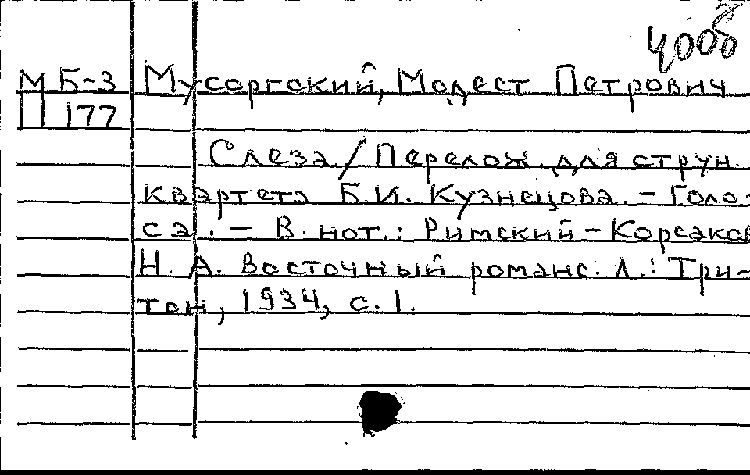 4008
М Б-3 Мусоргский, Модест Петрович
П 177
Слеза / Перелож. для струн.
квартета Б.И. Кузнецова. - Голо-
са. - В. нот.: Римский-Корсаков
Н. А. Восточный романс. Л.: Три-
тон, 1934, с. 1.